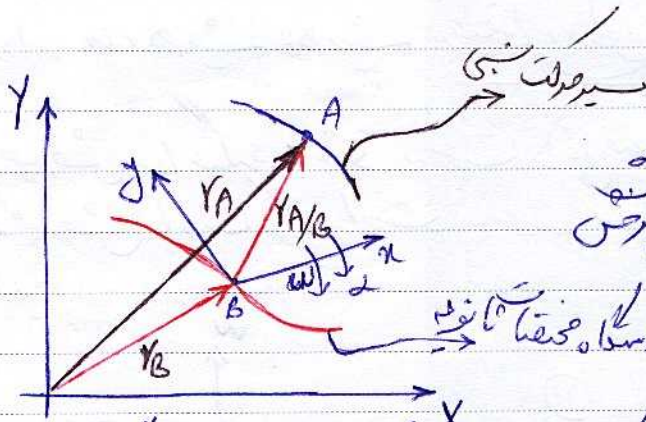 مسیر حرکت نسبی
Y
A
y
r_A
r_A/B
x
ω
α
B
r_B
مختصات ثانویه
X